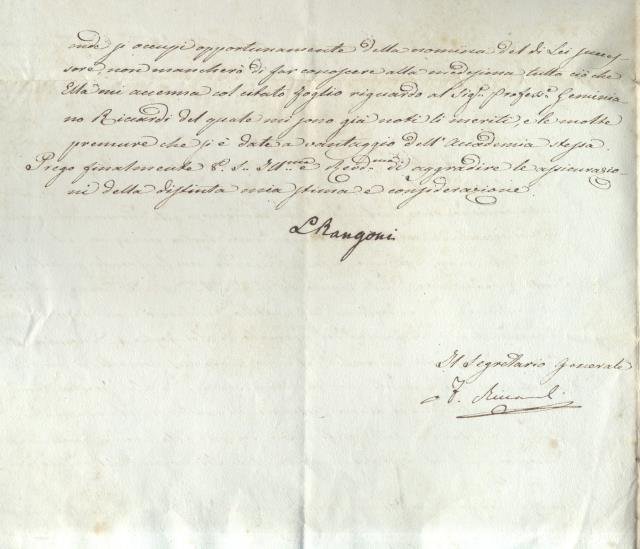 onde si occupi opportunamente della nomina del di Lei succes-
sore, non mancherò di far conoscere alla medesima tutto ciò che
Ella mi accenna col citato Foglio riguardo al Sig.r Profess.e Geminia
no Riccardi del quale mi sono già noti li meriti, e le molte
premure che si è date a vantaggio dell'Accademia stessa.
Prego finalmente V. S. Ill.ma e Rev.ma di aggradire le assicurazio-
ni della distinta mia stima e considerazione.
L Rangoni
Il Segretario Generale